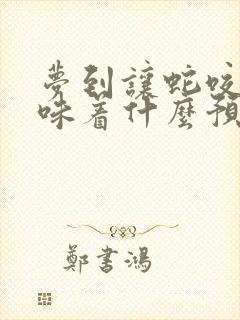 夢到讓蛇咬
味着什麼預
鄭書鴻